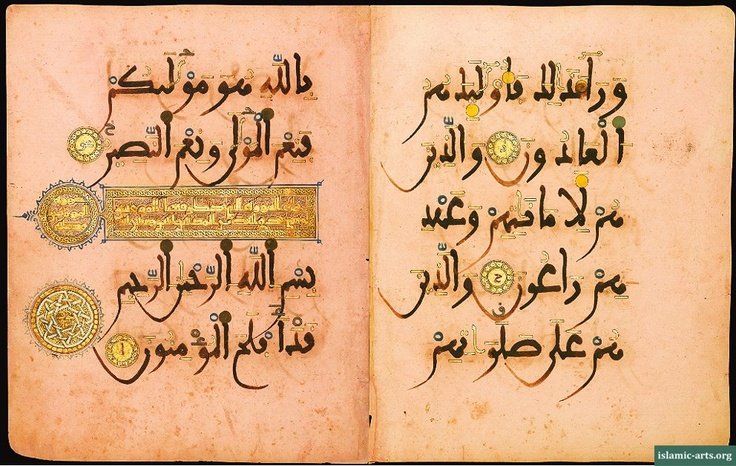 وراء ذلك فأولئك هم
العادون والذين
هم لأمنتهم وعهد
هم راعون والذين
هم على صلواتهم
بالله هو موليكم
فنعم المولى ونعم النصير
بسم الله الرحمن الرحيم
قد أفلح المؤمنون
islamic-arts.org